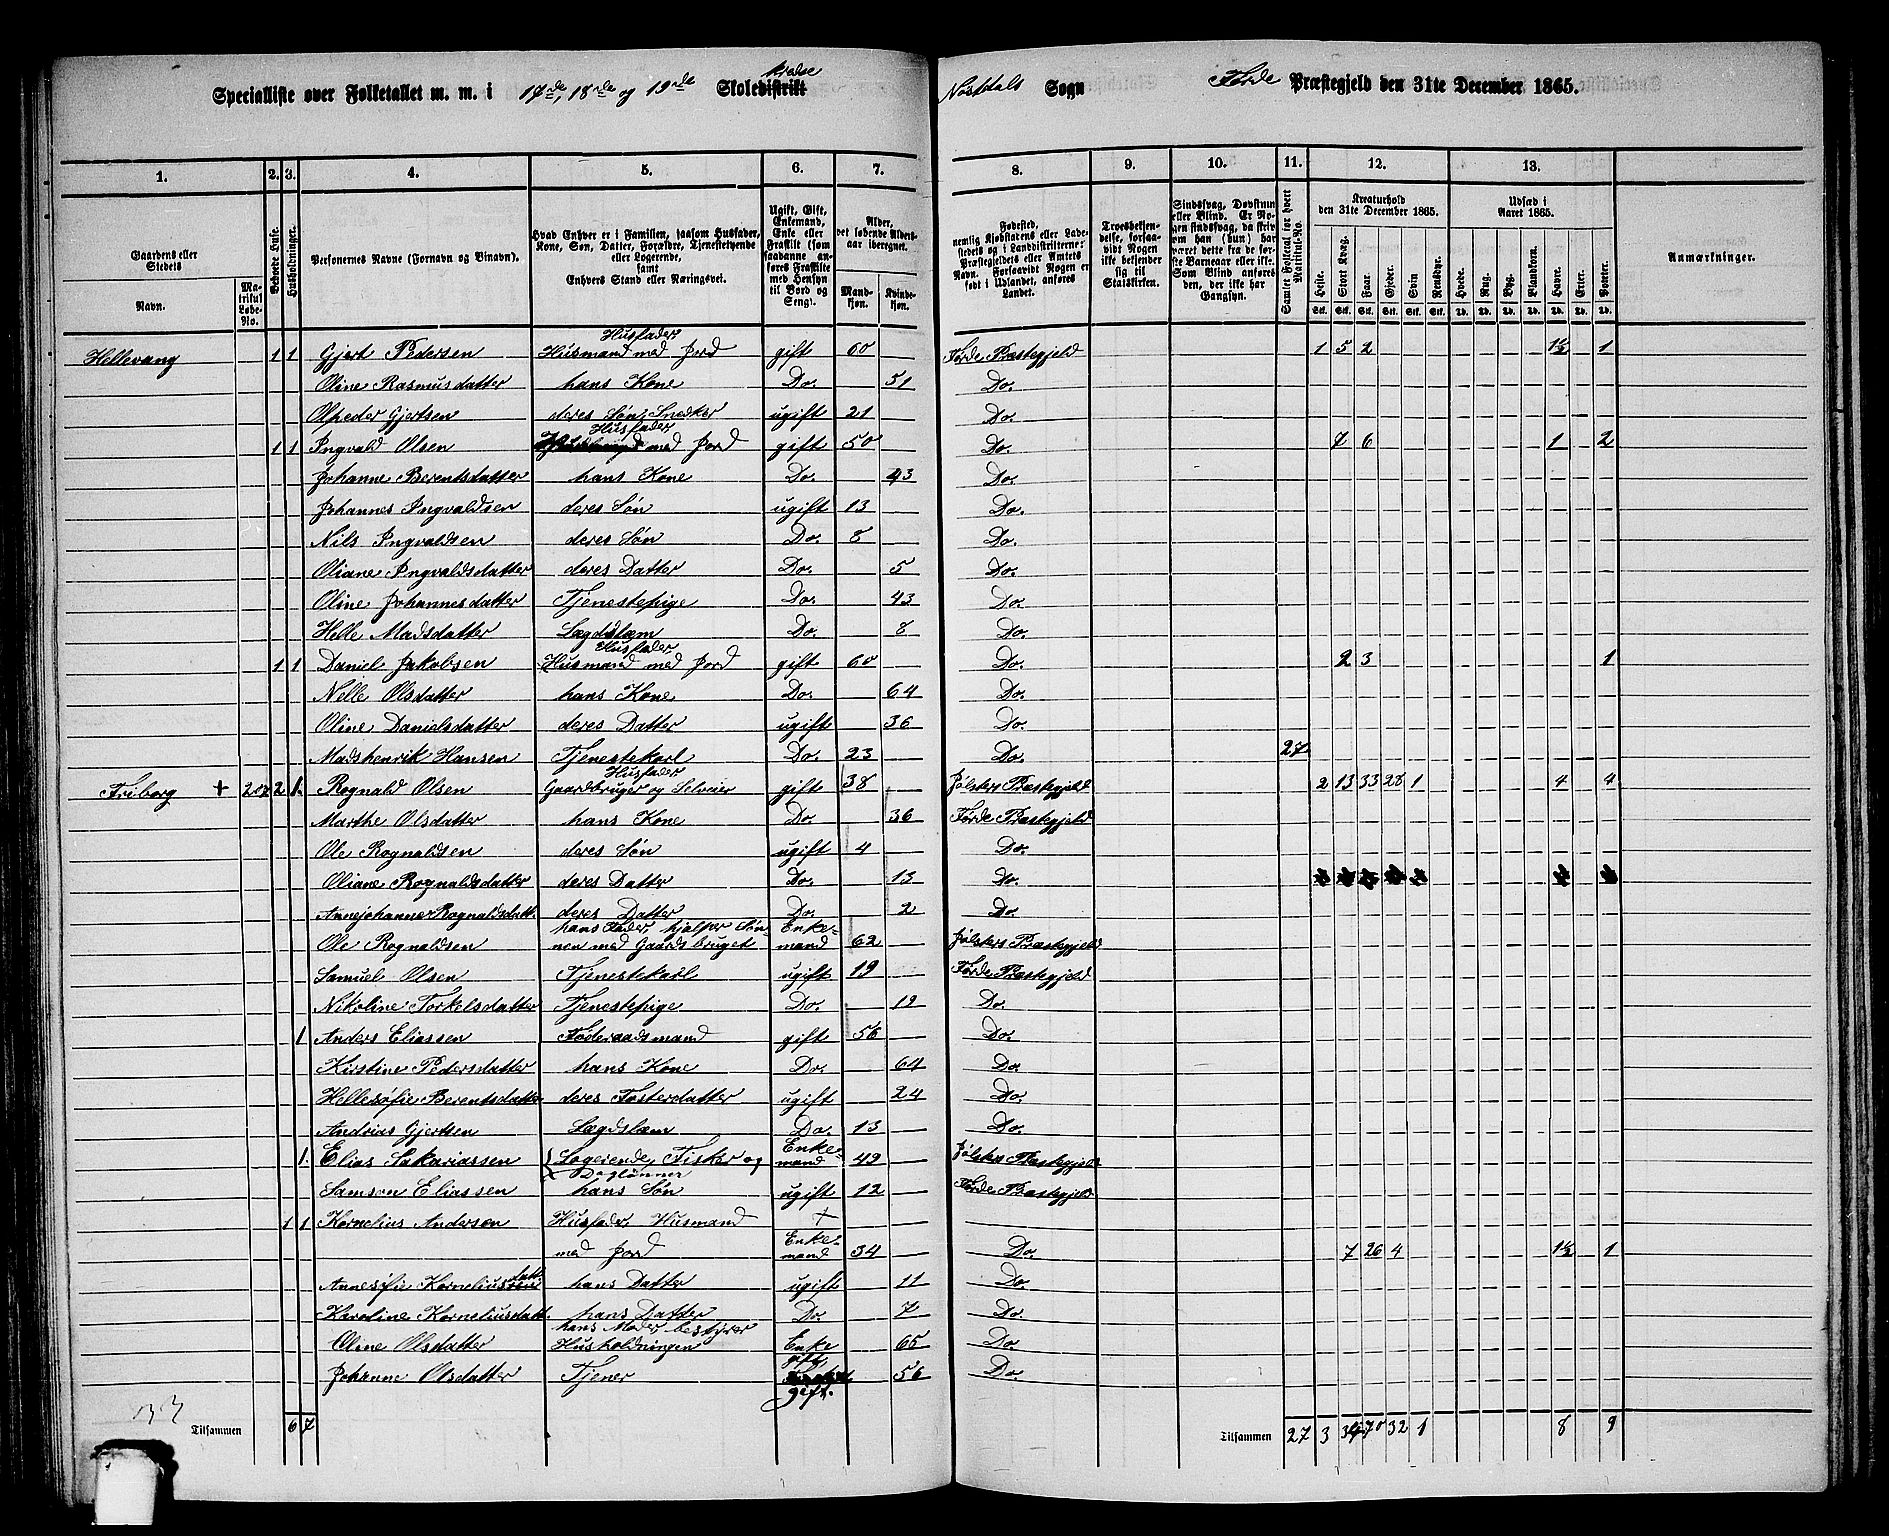 Specialliste over Folketallet m. m. i 17de, 18de og 19de Skoledistrikt Kredse Sogn Førde Præstegjeld den 31te December 1865.
1. 2. 3. 4. 5. 6. 7. 8. 9. 10. 11. 12. 13.
Gaardens eller Stedets Navn. Matrikul Løbe-No. Beboede Huse. Husholdninger. Personernes Navne (Fornavn og Binavn). Hvad Enhver er i Familien, saasom Husfader, Kone, Søn, Datter, Forældre, Tjenestetyende eller Logerende, samt Enhvers Stand eller Næringsvei. Ugift, Gift, Enkemand, Enke eller Fraskilt (som saadanne anføres Fraskilte med Hensyn til Bord og Seng). Alder, det løbende Alders-aar iberegnet. Mandkjøn. Kvindekjøn.
Fødested, nemlig Kjøbstadens eller Ladestedets og i Landdistrikterne: Præstegjeldets eller Amtets Navn. Forsaavidt Nogen er født i Udlandet, anføres Landet. Troesbekjendelse, forsaavidt Nogen ikke bekjender sig til Statskirken. Sindssvag, Døvstum eller Blind. Er Nogen sindssvag, da skrives om han (hun) har været dette fra de første Barneaar eller ikke. Som Blind anføres den, der ikke har Gangsyn. Samlet Folketal for hvert Matrikul-No. Kreaturhold den 31te December 1865. Udsæd i Aaret 1865. Anmærkninger.
Heste. Stort Kvæg. Faar. Gjeder. Svin. Rensdyr. Hvede. Rug. Byg. Blandkorn. Havre. Erter. Poteter.
Hellevang 1 1 Gjert Pedersen Husfader, Husmand med Jord gift 60 Førde Præstegjeld 1 5 2 1½ 1
Oline Rasmusdatter hans Kone Do. 51 Do.
Olpeder Gjertsen deres Søn, Snedker ugift 21 Do.
1 1 Ingvald Olsen Husfader med Jord gift 50 Do. 7 6 1 2
Johanne Berentsdatter hans Kone Do. 43 Do.
Johannes Ingvaldsen deres Søn ugift 13 Do.
Nils Ingvaldsen deres Søn Do. 8 Do.
Oliane Ingvaldsdatter deres Datter Do. 5 Do.
Oline Johannesdatter Tjenestepige Do. 43 Do.
Helle Madsdatter Lægdslæm Do. 8 Do.
1 1 Daniel Jakobsen Husfader, Husmand med Jord gift 60 Do. 2 3 1
Nelle Olsdatter hans Kone Do. 64 Do.
Oline Danielsdatter deres Datter ugift 36 Do.
Madshenrik Hansen Tjenestekarl Do. 23 Do. 27
Friborg + 202 2 1 Rognald Olsen Husfader Gaardbruger og Selveier gift 38 Jølsters Præstegjeld 2 13 33 28 1 4 4
Marthe Olsdatter hans Kone Do. 36 Førde Præstegjeld
Ole Rognaldsen deres Søn ugift 4 Do.
Oliane Rognaldsdatter deres Datter Do. 13 Do.
Annejohanne Rognaldsdatt. deres Datter Do. 2 Do.
Ole Rognaldsen hans Fader, hjælper Sønnen med Gaardsbruget Enkemand 62 Jølsters Præstegjeld
Samuel Olsen Tjenestekarl ugift 19 Førde Præstegjeld
Nikoline Torkelsdatter Tjenestepige Do. 19 Do.
1 Anders Eliassen Føderaadsmand gift 56 Do.
Kirstine Pedersdatter hans Kone Do. 64 Do.
Hellesøfie Berentsdatter deres Fosterdatter ugift 24 Do.
Andrias Gjertsen Lægdslæm Do. 13 Do.
1. Elias Sakariassen Logerende, Fisker og Daglønner Enkemand 49 Jølsters Præstegjeld
Samson Eliassen hans Søn ugift 12 Førde Præstegjeld
1 1 Kornelius Andersen Husfader, Husmand +
med Jord Enkemand 34 Do. 7 26 4 1½ 1
Annesøfie Korneliusdatt. hans Datter ugift 11 Do.
Karoline Korneliusdatt. hans Datter Do. 7 Do.
Oline Olsdatter hans Moder, bestyrer Husholdningen Enke 65 Do.
Johanne Olsdatter Tjener gift. 56 Do.
Tilsammen 6 7 Tilsammen 27 3 34 70 32 1 8 9